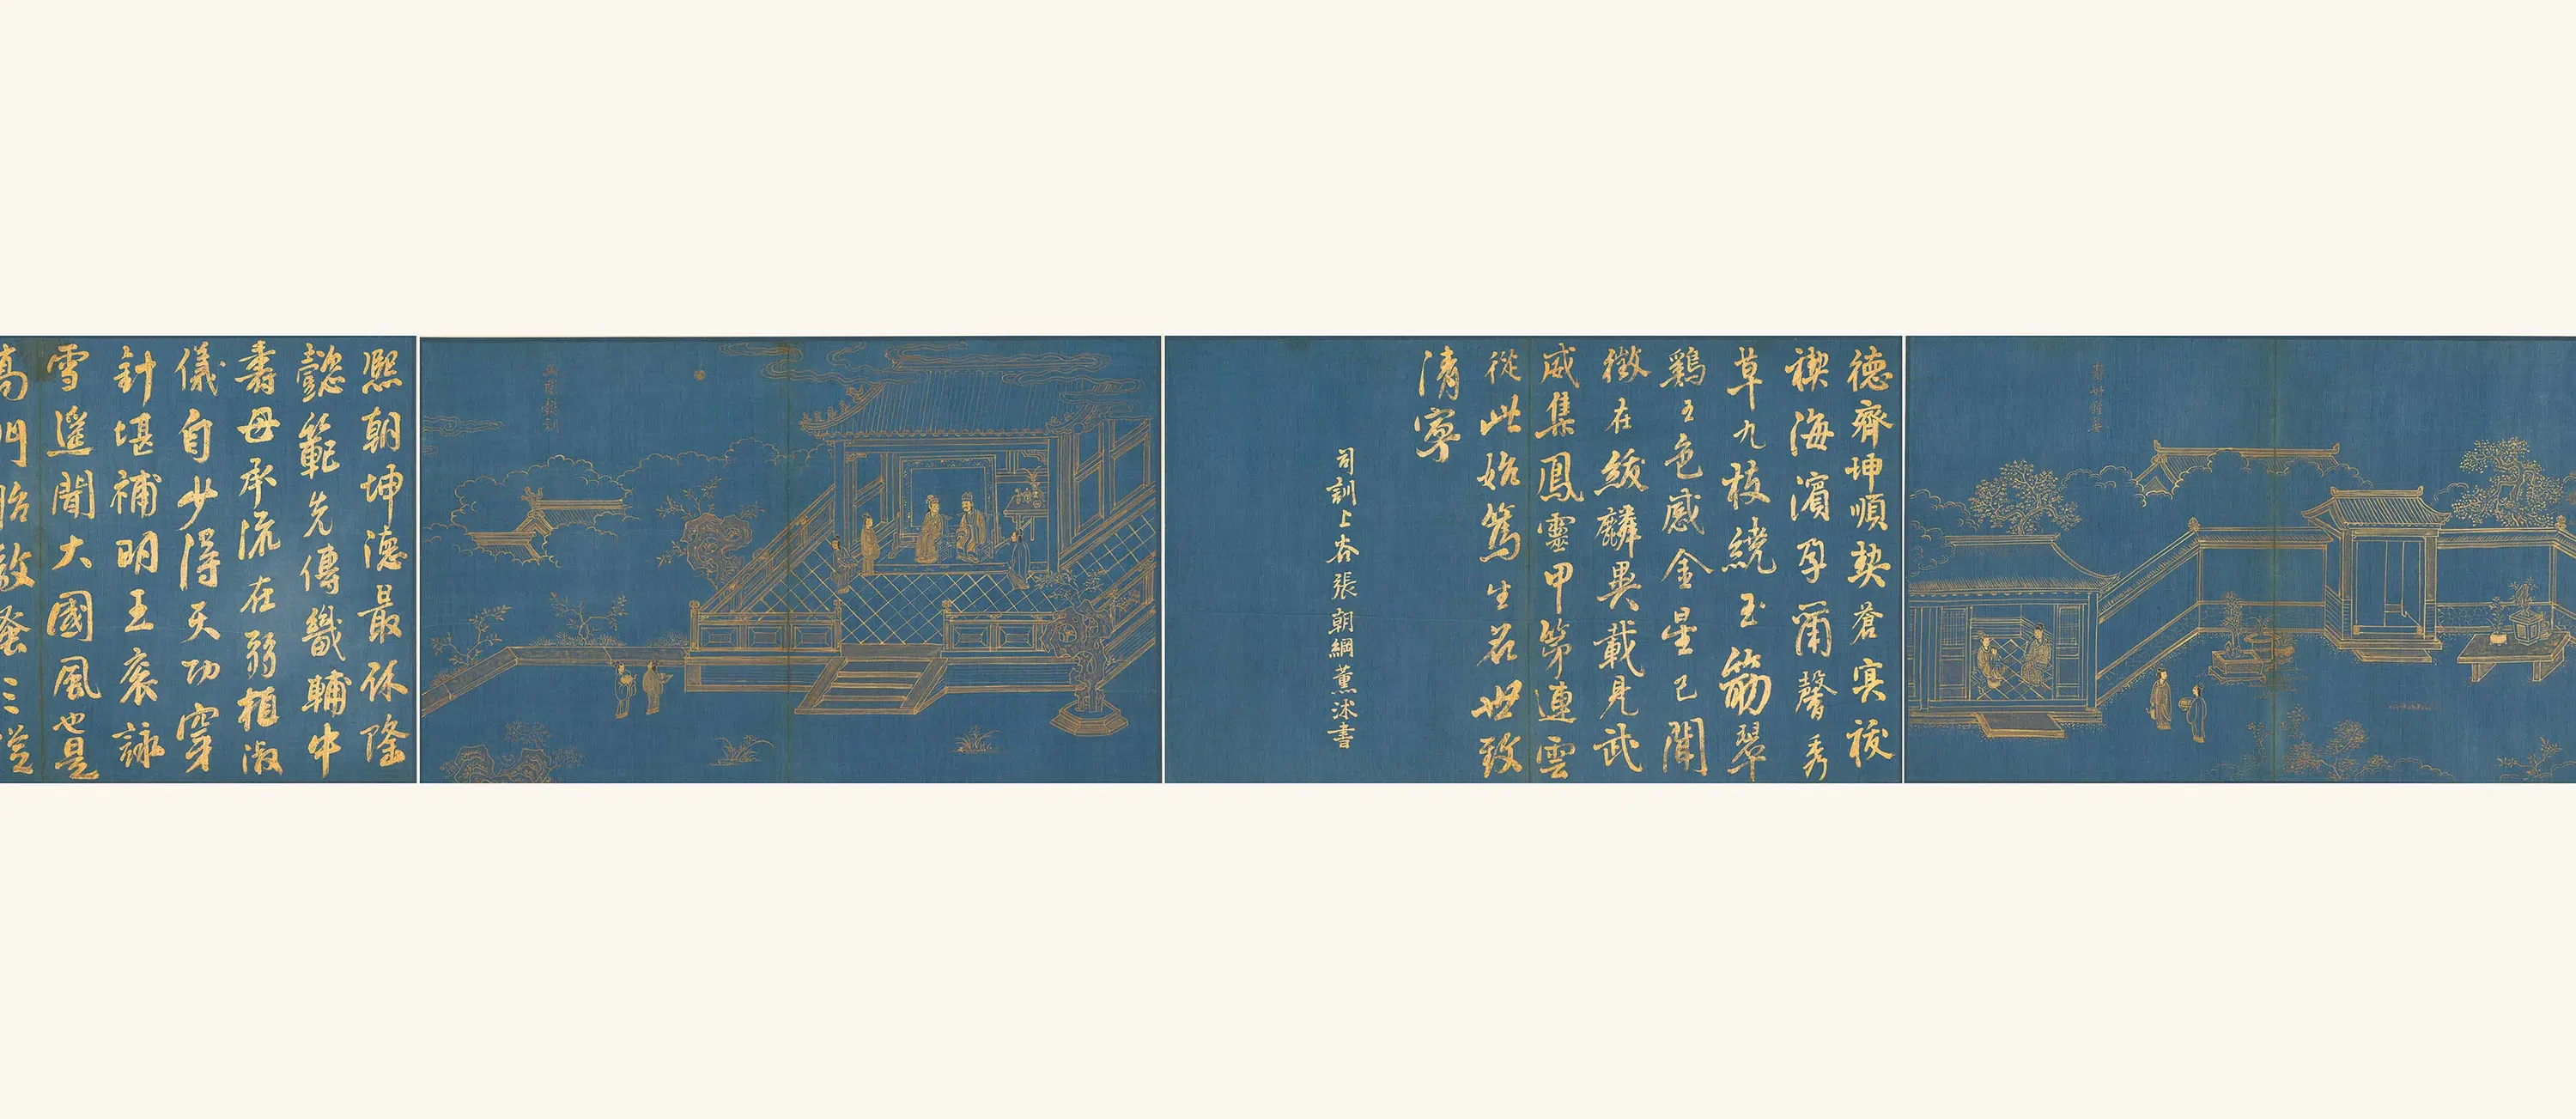 德齊坤順契蒼冥祓
禊海濱孕爾馨秀
草九枝繞玉筋翠
鷄五色感金星已聞
徵在紱麟異載見武
威集鳳靈甲第連雲
從此始篤生名世致
清寧
司訓上谷張朝綱薰沐書
熙朝坤德最休隆
懿範先傳畿輔中
壽母承流在弱植淑
儀自少得天功穿
針堪補明王袞詠
雪遙聞大國風也是
高門貽